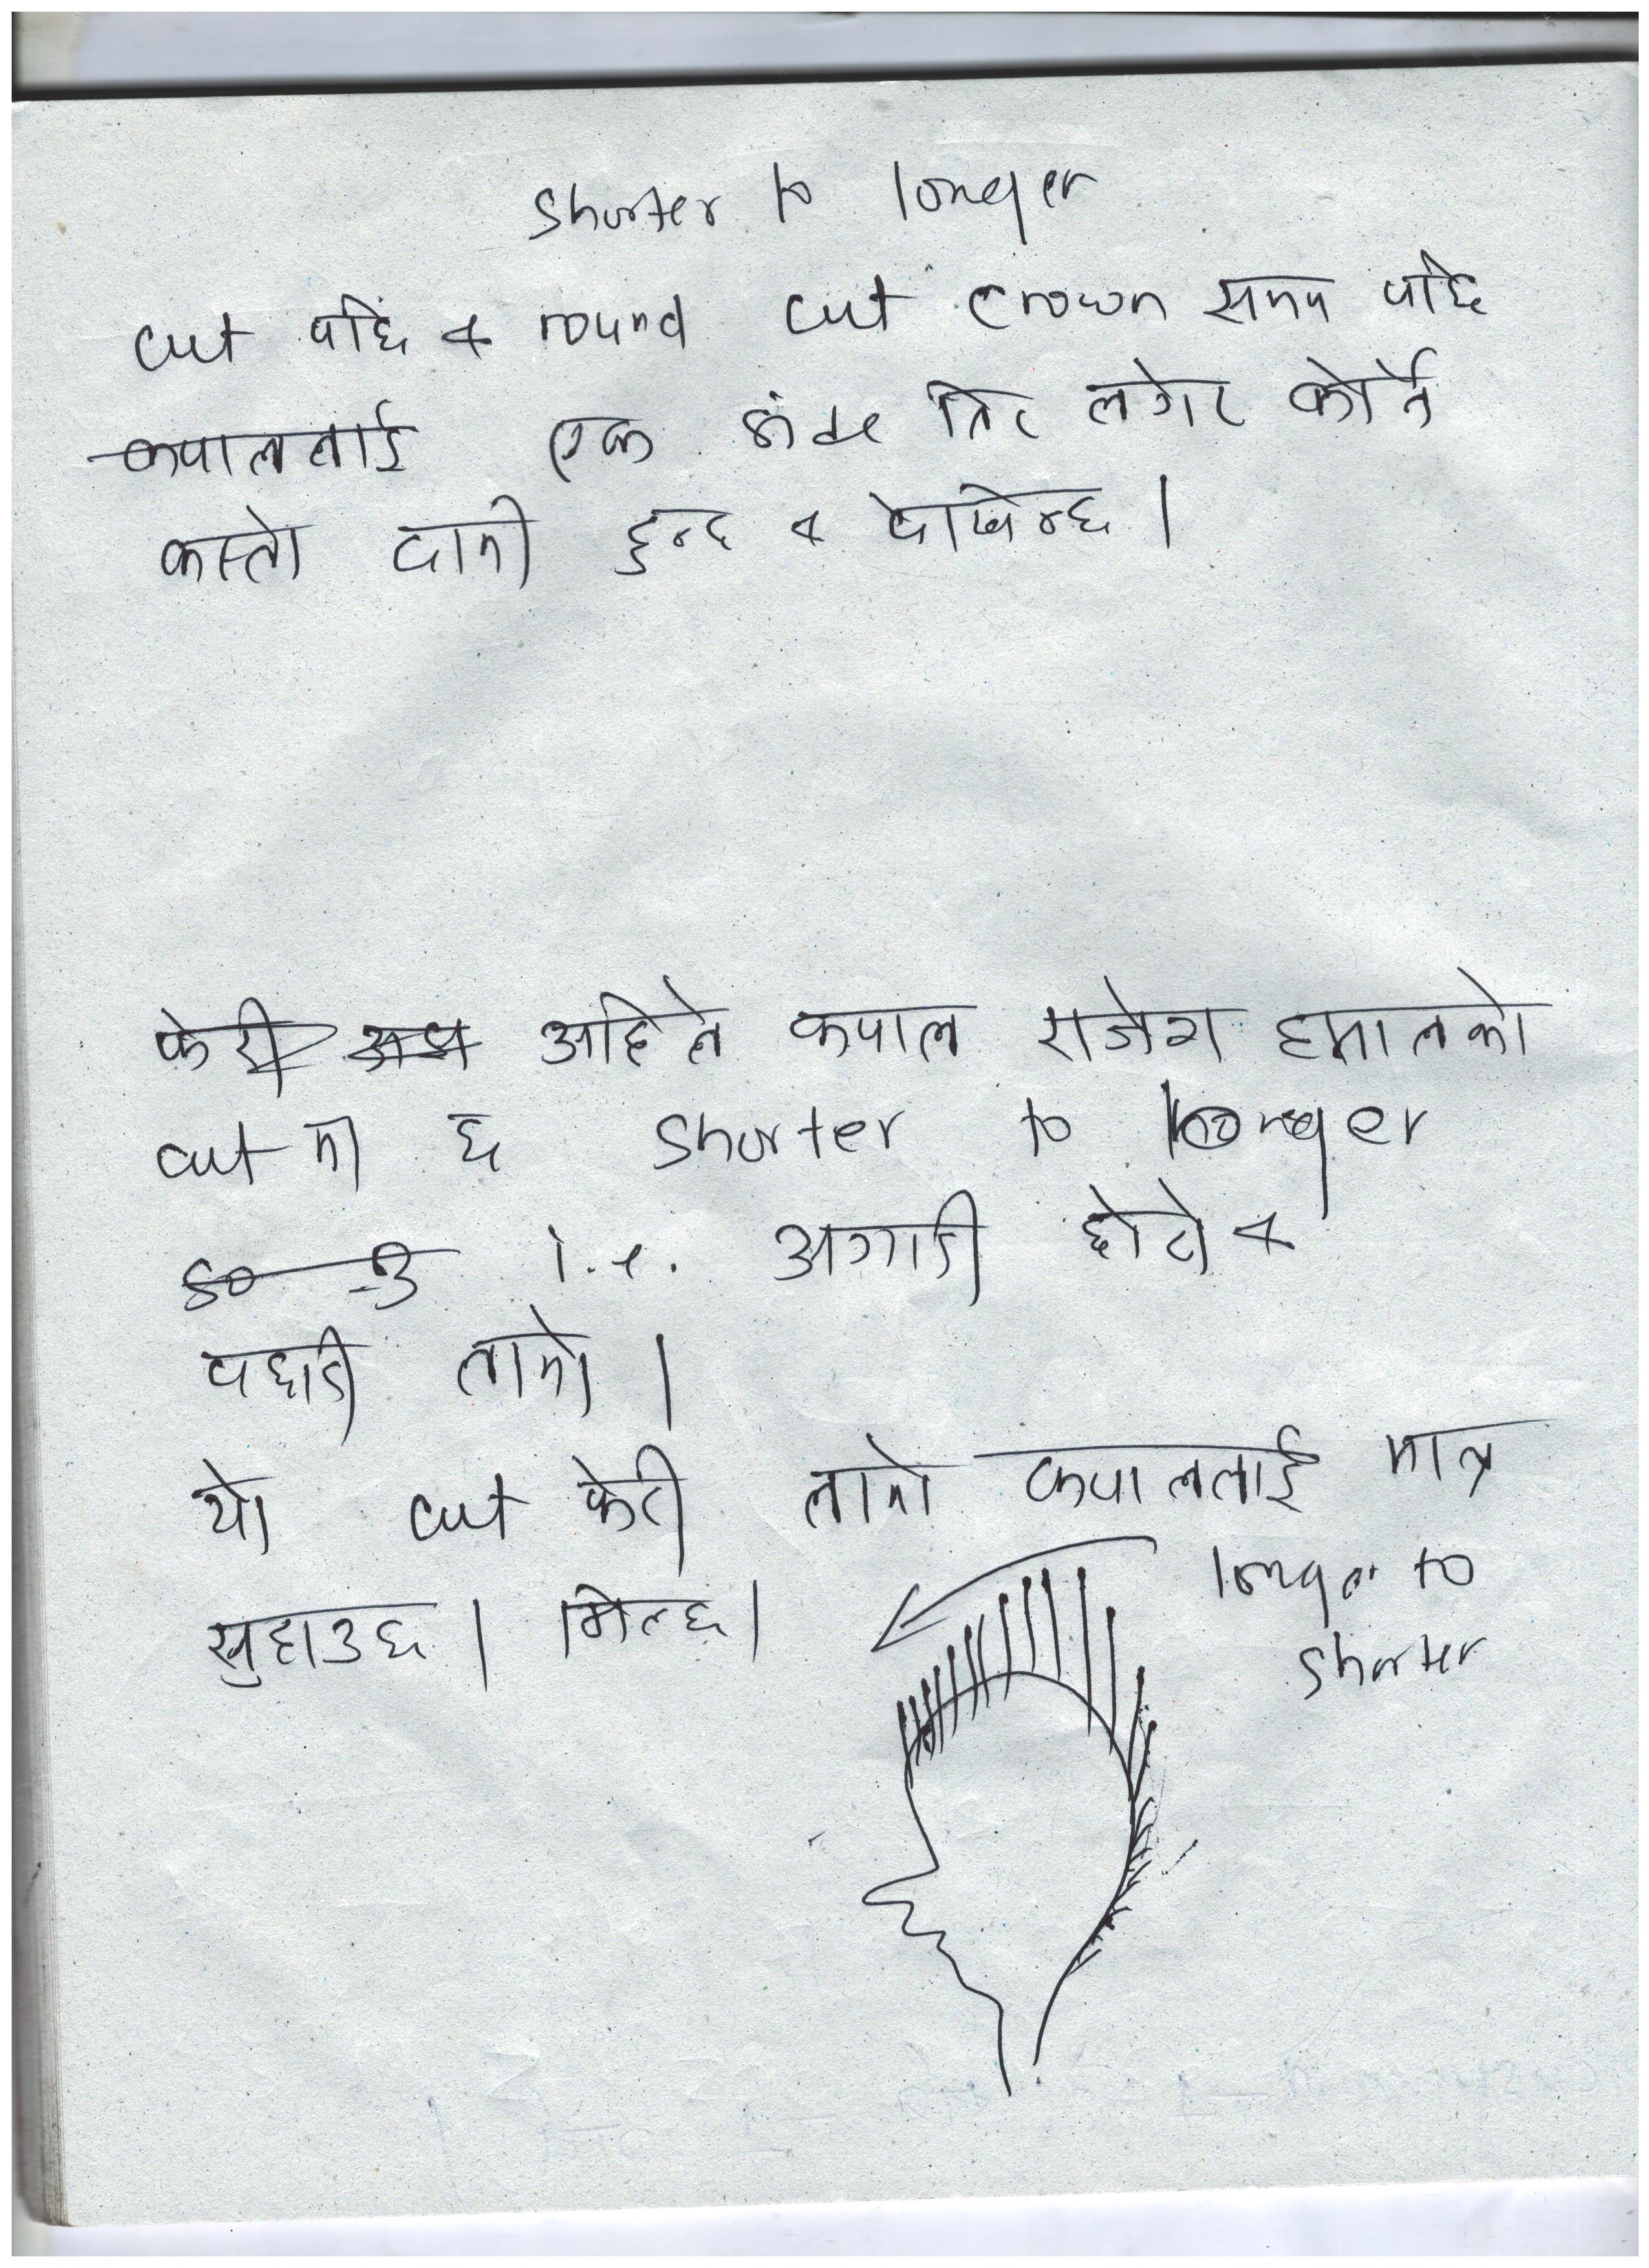 shorter to longer
cut पछि & round cut crown सम्म पछि
कपाललाई एक साइड तिर लगेर कोर्ने
कस्तो दामी हुन्छ & देखिन्छ।
फेरी अहिले कपाल राजेश हमालको
cut मा छ shorter to longer
i.e. अगाडी छोटो &
पछाडी लामो।
यो cut फेरी लामो कपाललाई मात्र
सुहाउछ। मिल्छ।
longer to
shorter